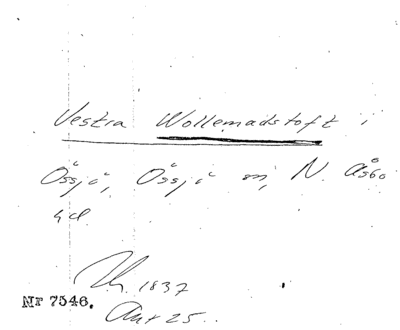 Vestra Wollemadstoft i
Össjö, Össjö sn, N. Åsbo
hd
1837
Nr 7546.